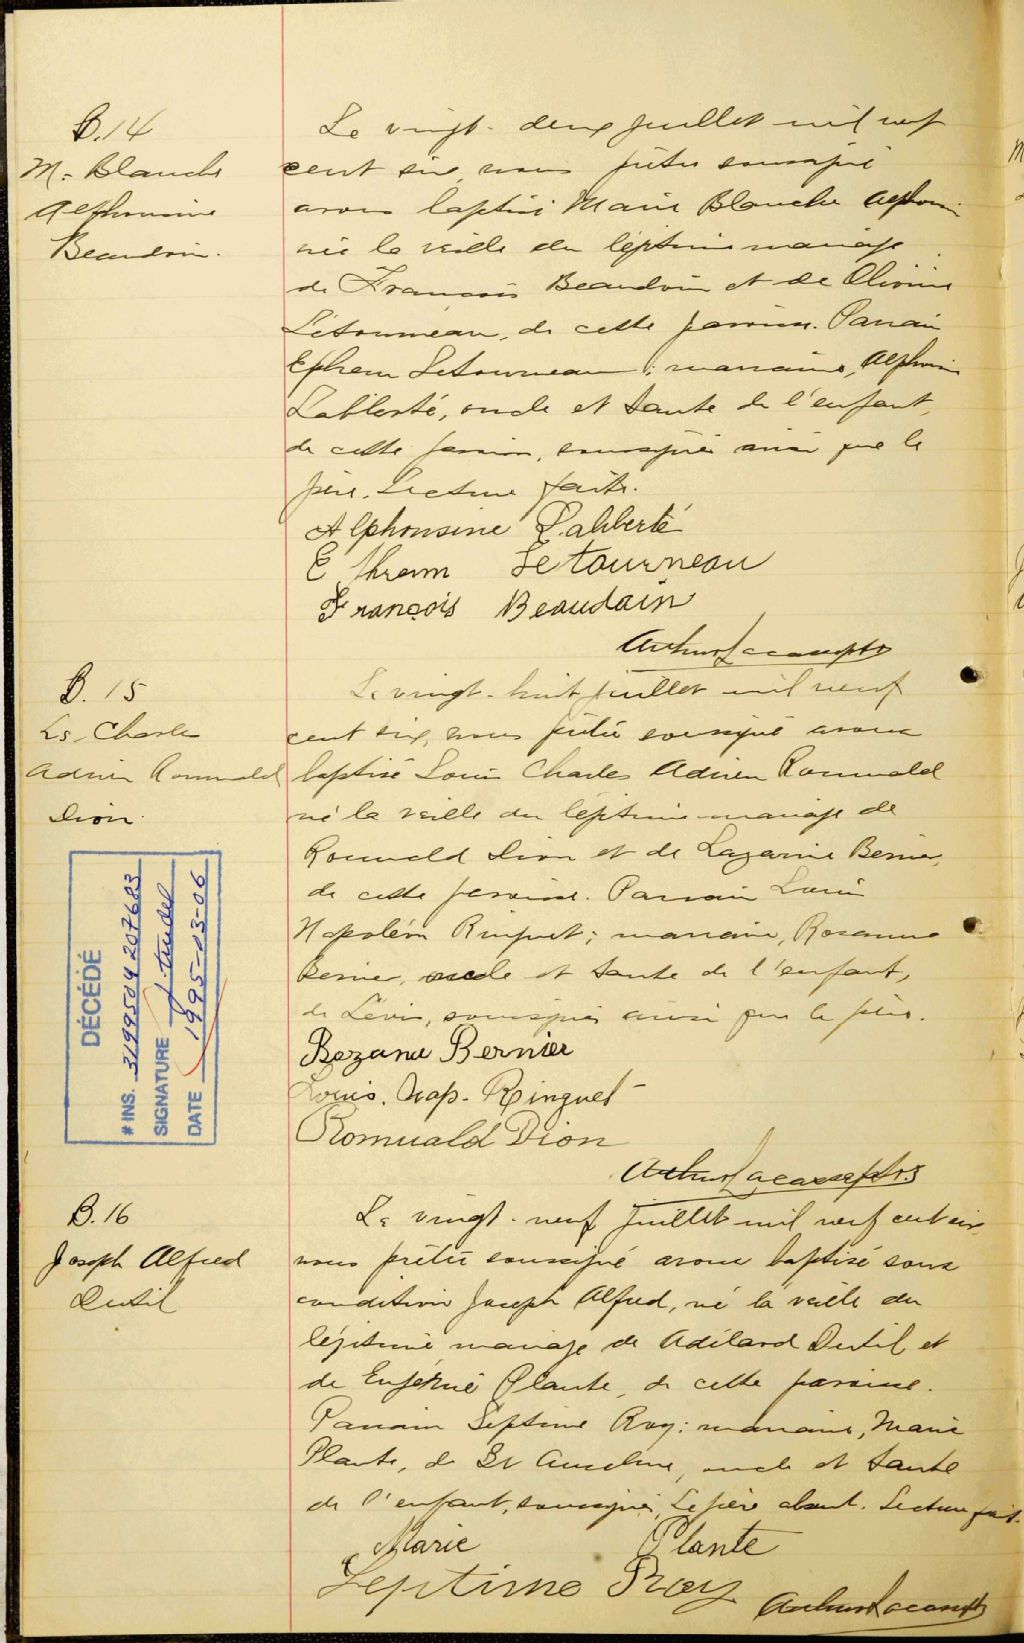 B.14
M. Blanche
Alphonsine
Beaudoin.
Le vingt-deux juillet mil neuf
cent six, nous prêtre soussigné
avons baptisé Marie Blanche Alphonsine
née la veille du légitime mariage
de François Beaudoin et de Olivine
Létourneau, de cette paroisse. Parrain
Ephrem Letourneau; marraine, Alphonsine
Laliberté, oncle et tante de l'enfant,
de cette paroisse, soussignés ainsi que le
père. Lecture faite.
Alphonsine Laliberté
Ephrem Letourneau
François Beaudoin
Arthur Lacasse ptre
B. 15
Ls. Charles
Adrien Romuald
Dion.
Le vingt-huit juillet mil neuf
cent six, nous prêtre soussigné avons
baptisé Louis Charles Adrien Romuald
né la veille du légitime mariage de
Romuald Dion et de Lazarine Bernier,
de cette paroisse. Parrain Louis
Napoléon Ringuet; marraine, Rosanna
Bernier, oncle et tante de l'enfant,
de Lévis, soussignés ainsi que le père.
Rozana Bernier
Louis. Nap. Ringuet
Romuald Dion
Arthur Lacasse ptre
DÉCÉDÉ
# INS. 3199504207683
SIGNATURE J. Trudel
DATE 1995-03-06
B.16
Joseph Alfred
Dutil
Le vingt-neuf juillet mil neuf cent six,
nous prêtre soussigné avons baptisé sous
condition Joseph Alfred, né la veille du
légitime mariage de Adélard Dutil et
de Eugénie Plante, de cette paroisse.
Parrain Septime Roy; marraine, Marie
Plante, de St Anselme, oncle et tante
de l'enfant, soussignés, Le père absent. Lecture faite.
Marie Plante
Septime Roy
Arthur Lacasse ptre